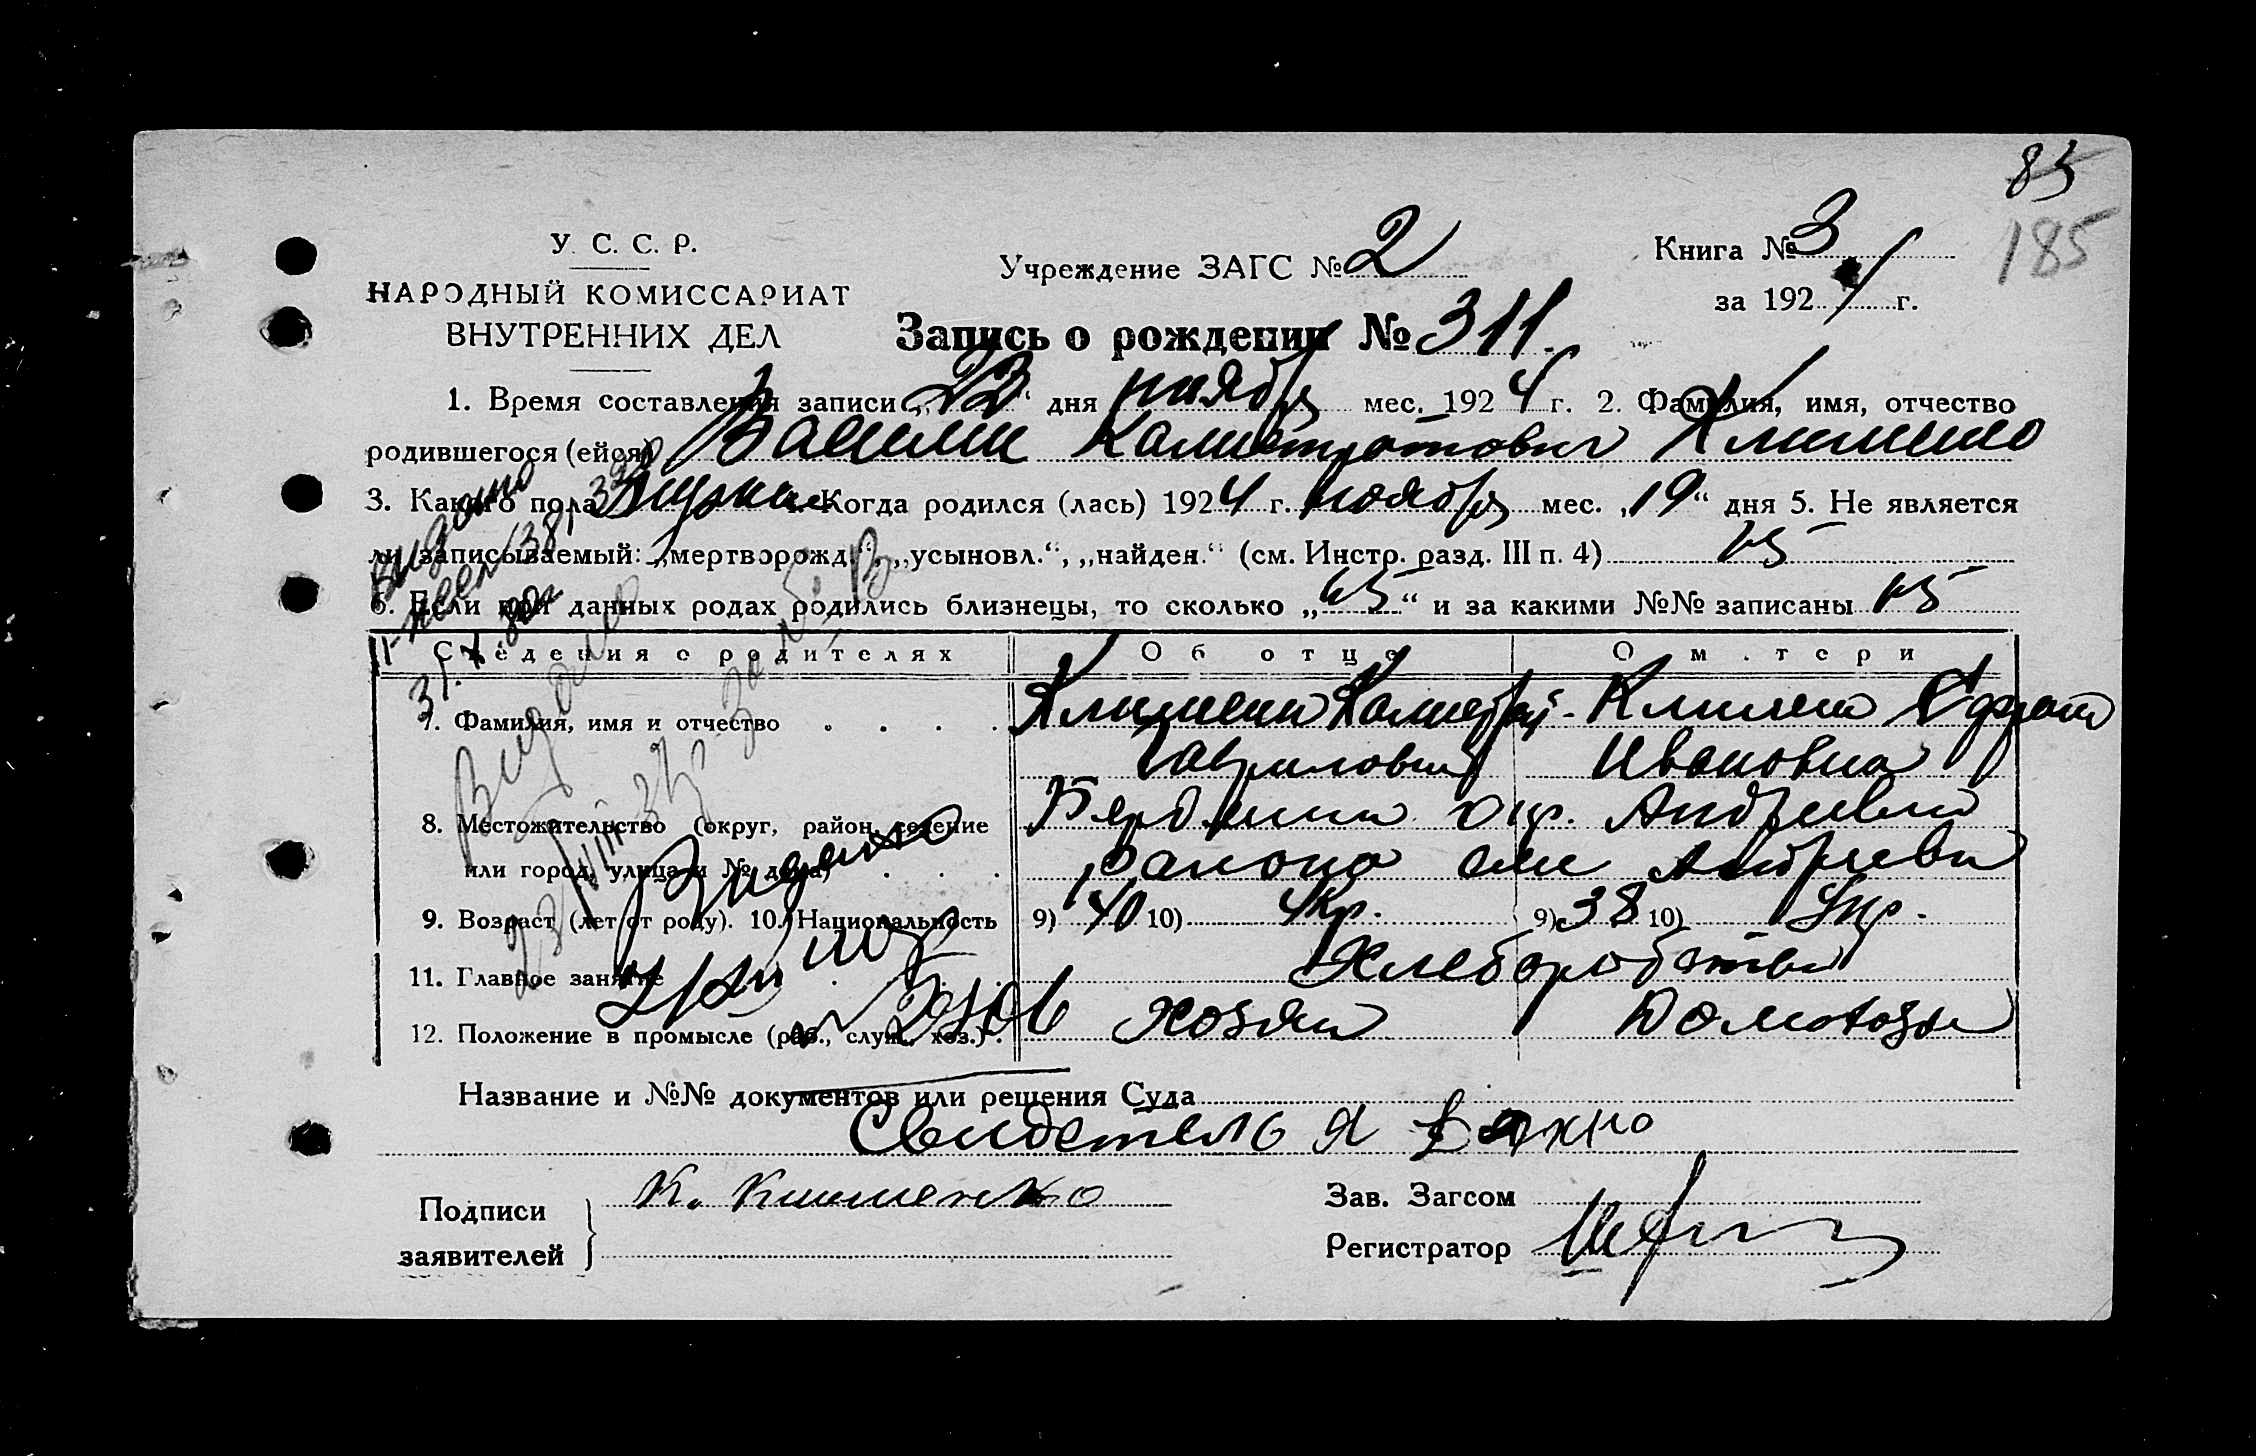 85
185
У. С. С. Р.
НАРОДНЫЙ КОМИССАРИАТ
ВНУТРЕННИХ ДЕЛ
Учреждение ЗАГС № 2
Книга № 3
за 192 4 г.
Запись о рождении № 311.
1. Время составления записи „23“ дня ноября мес. 192 4 г. 2. Фамилия, имя, отчество
родившегося (ейся) Василий Калистратович Клименко
3. Какого пола Мужск 4. Когда родился (лась) 192 4 г. ноября мес. „19“ дня 5. Не является
ли записываемый: „мертворожд.“, „усыновл.“, „найден.“ (см. Инстр. разд. III п. 4)
6. Если при данных родах родились близнецы, то сколько „ “ и за какими №№ записаны
Сведения о родителях Об отце О матери
7. Фамилия, имя и отчество . . . . Клименко Калистрат Клименко
Гаврилович Ивановна
8. Местожительство (округ, район, селение Бердянск окр. Андреевки
или город, улица и № дома) . . . района село Андреевка
9. Возраст (лет от роду). 10. Национальность 9) 40 10) Укр. 9) 38 10) Укр.
11. Главное занятие Хлеборобство
12. Положение в промысле (раб., служ., хоз.) . хозяин Домохоз
Видано
Видано
Видано
Название и №№ документов или решения Суда
Свидетель Я Вахно
Подписи заявителей К. Клименко
Зав. Загсом
Регистратор